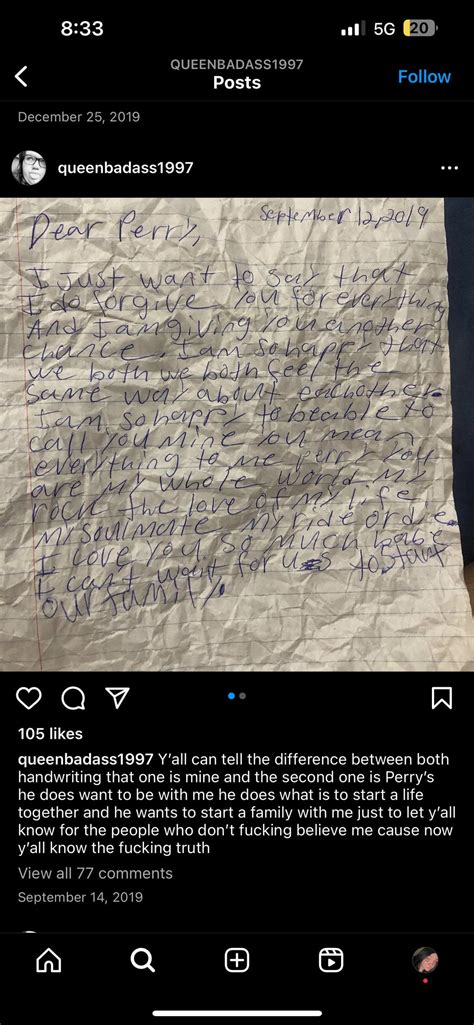 8:33
5G 20
QUEENBADASS1997
Posts
Follow
December 25, 2019
queenbadass1997
September 12, 2019
Dear Perry,
I just want to say that
I do forgive you for everything
And I am giving you another
chance. I am so happy that
we both we both feel the
same way about eachother.
I am so happy to beable to
call you mine you mean
everything to me perry you
are my whole world my
rock the love of my life
my soulmate my ride or die
I love you so much babe
I cant wait for us to start
our family.
105 likes
queenbadass1997 Y'all can tell the difference between both
handwriting that one is mine and the second one is Perry's
he does want to be with me he does what is to start a life
together and he wants to start a family with me just to let y'all
know for the people who don't fucking believe me cause now
y'all know the fucking truth
View all 77 comments
September 14, 2019